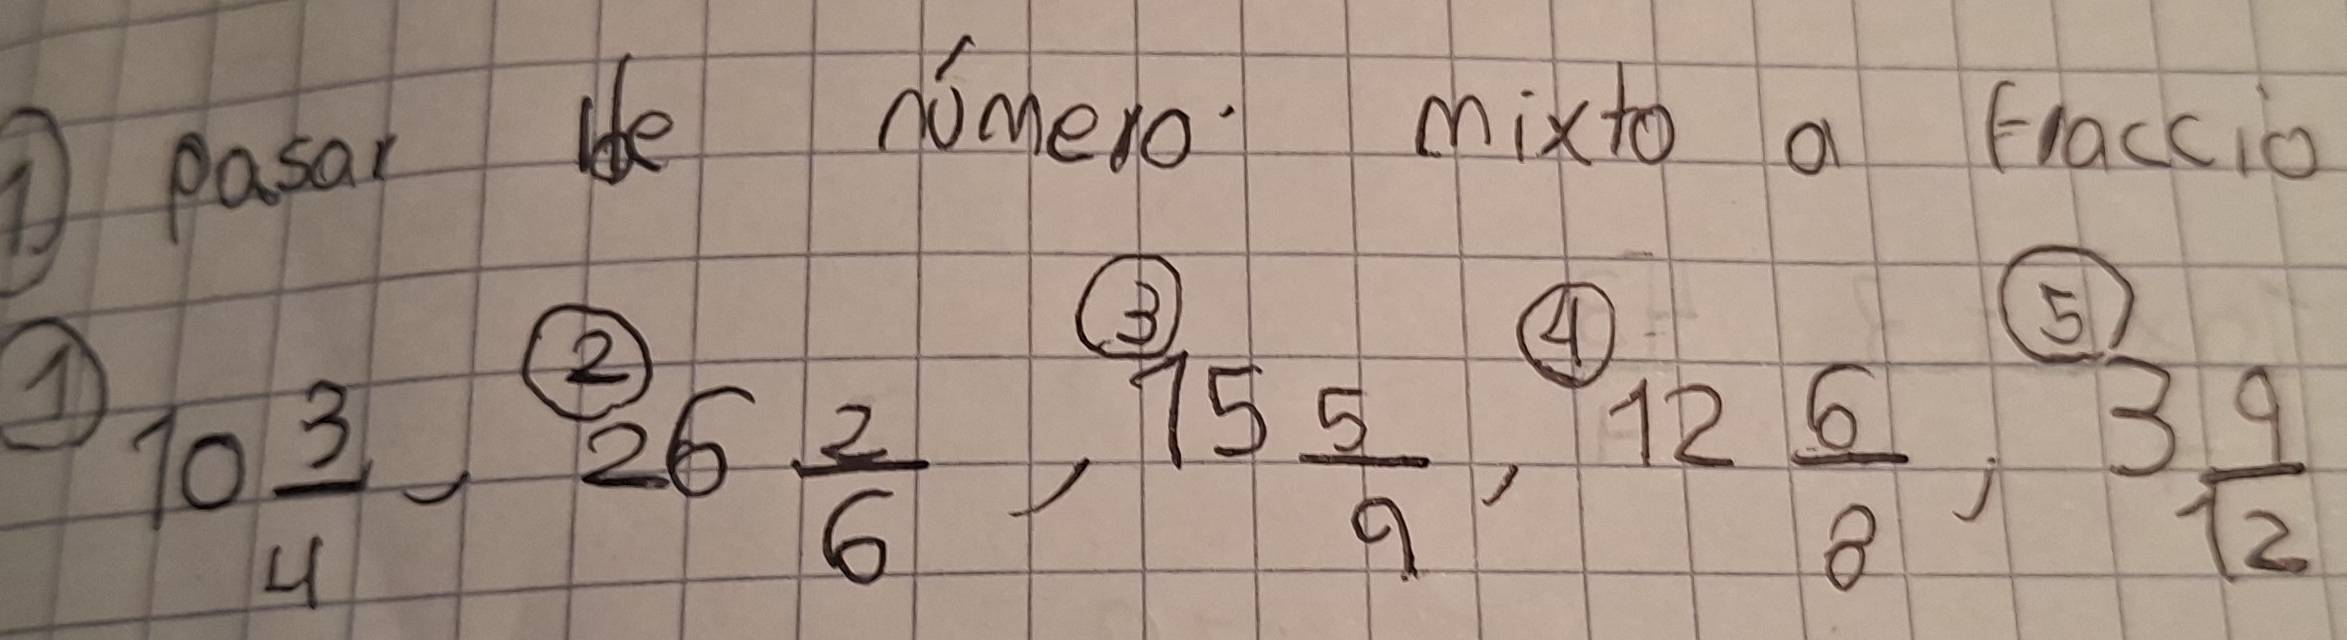 ① pasar de número mixto a Fraccio
① 10 3/4, ② 26 2/6, ③ 15 5/9, ④ 12 6/8, ⑤ 3 9/12